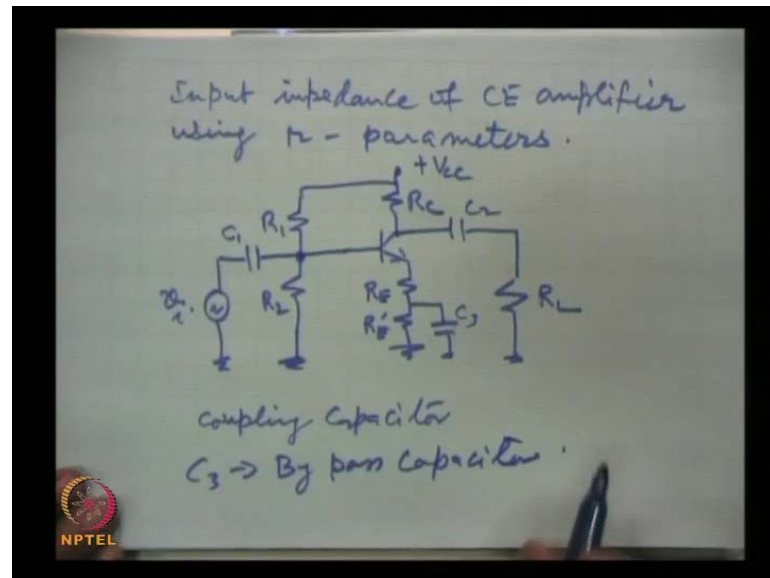 Input impedance of CE amplifier
using r - parameters.
+VCC
RC
C2
R1
C1
vi
R2
RE
RE'
C3
RL
Coupling Capacitor
C3 → By pass Capacitor.
NPTEL